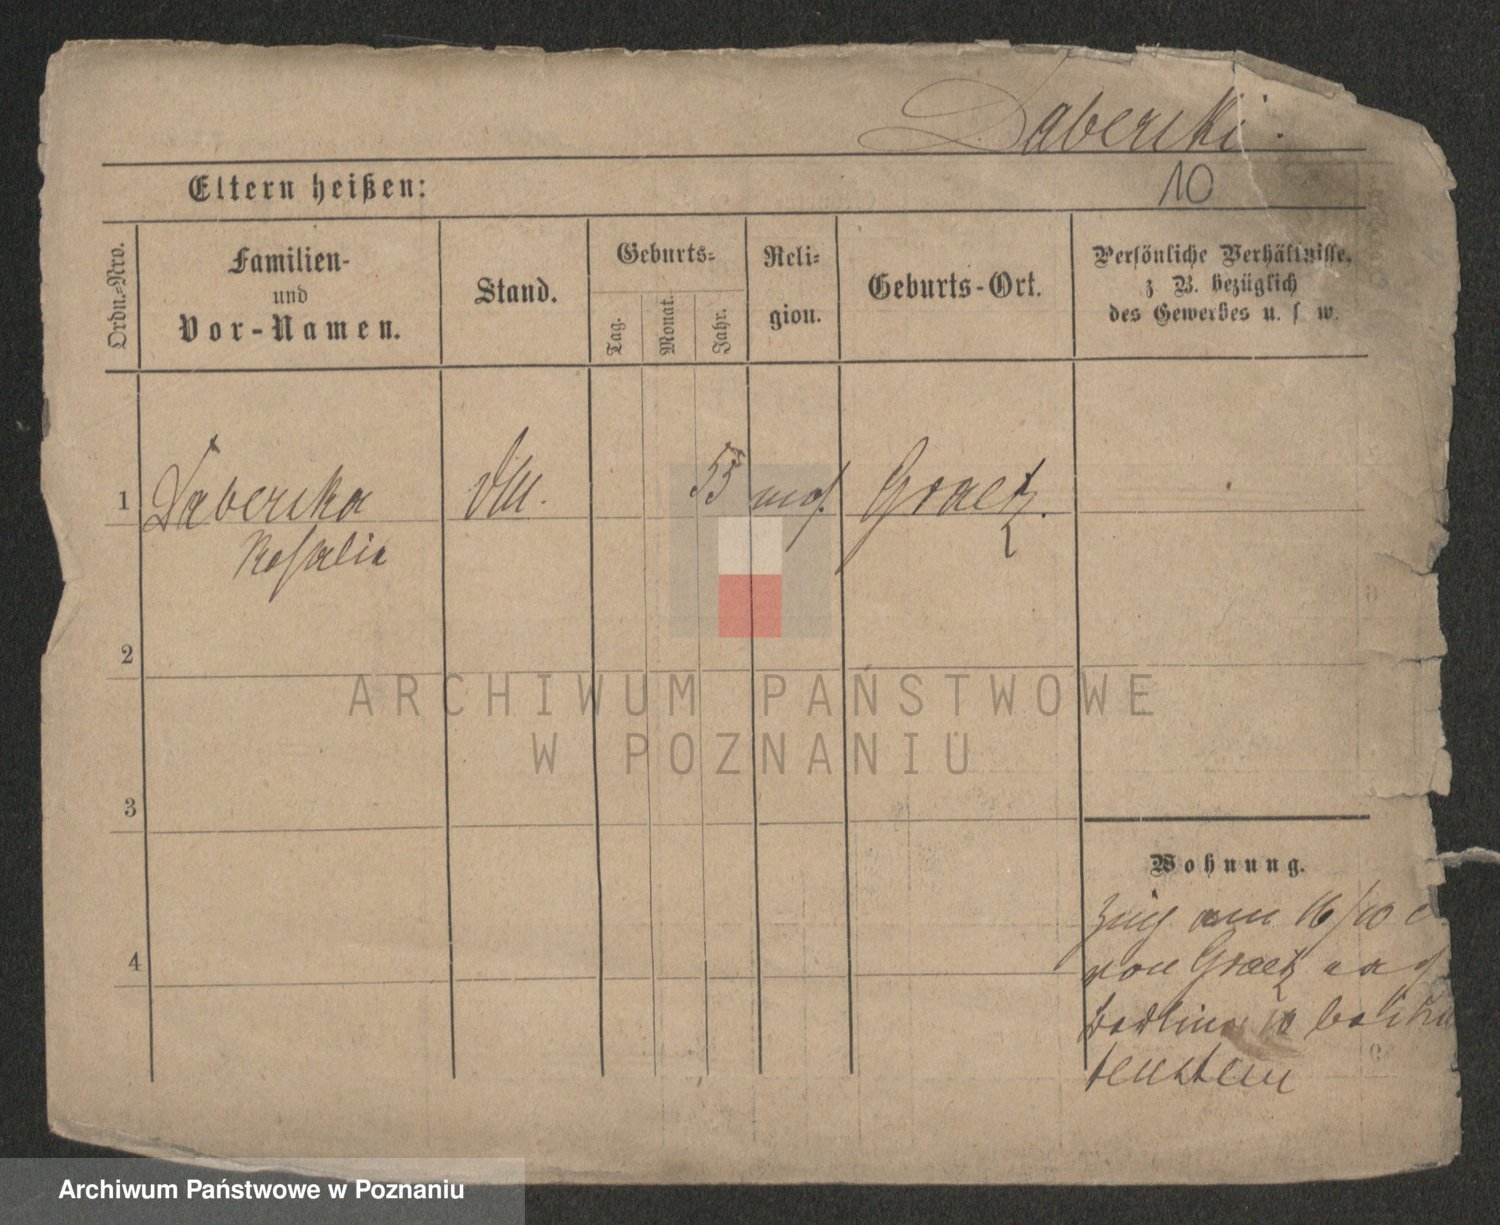 Daberski.
Eltern heißen:
10
Ordn.=Nro.
Familien-
und
Vor-Namen.
Stand.
Geburts-
Tag.
Monat.
Jahr.
Reli-
gion.
Geburts-Ort.
Persönliche Verhältnisse,
z B. bezüglich
des Gewerbes u. s w.
1 Daberska 53 Graetz.
Rosalie
2
3
4
Wohnung.
am 16/10
von Graetz
10 bei
ARCHIWUM PAŃSTWOWE
W POZNANIU
Archiwum Państwowe w Poznaniu